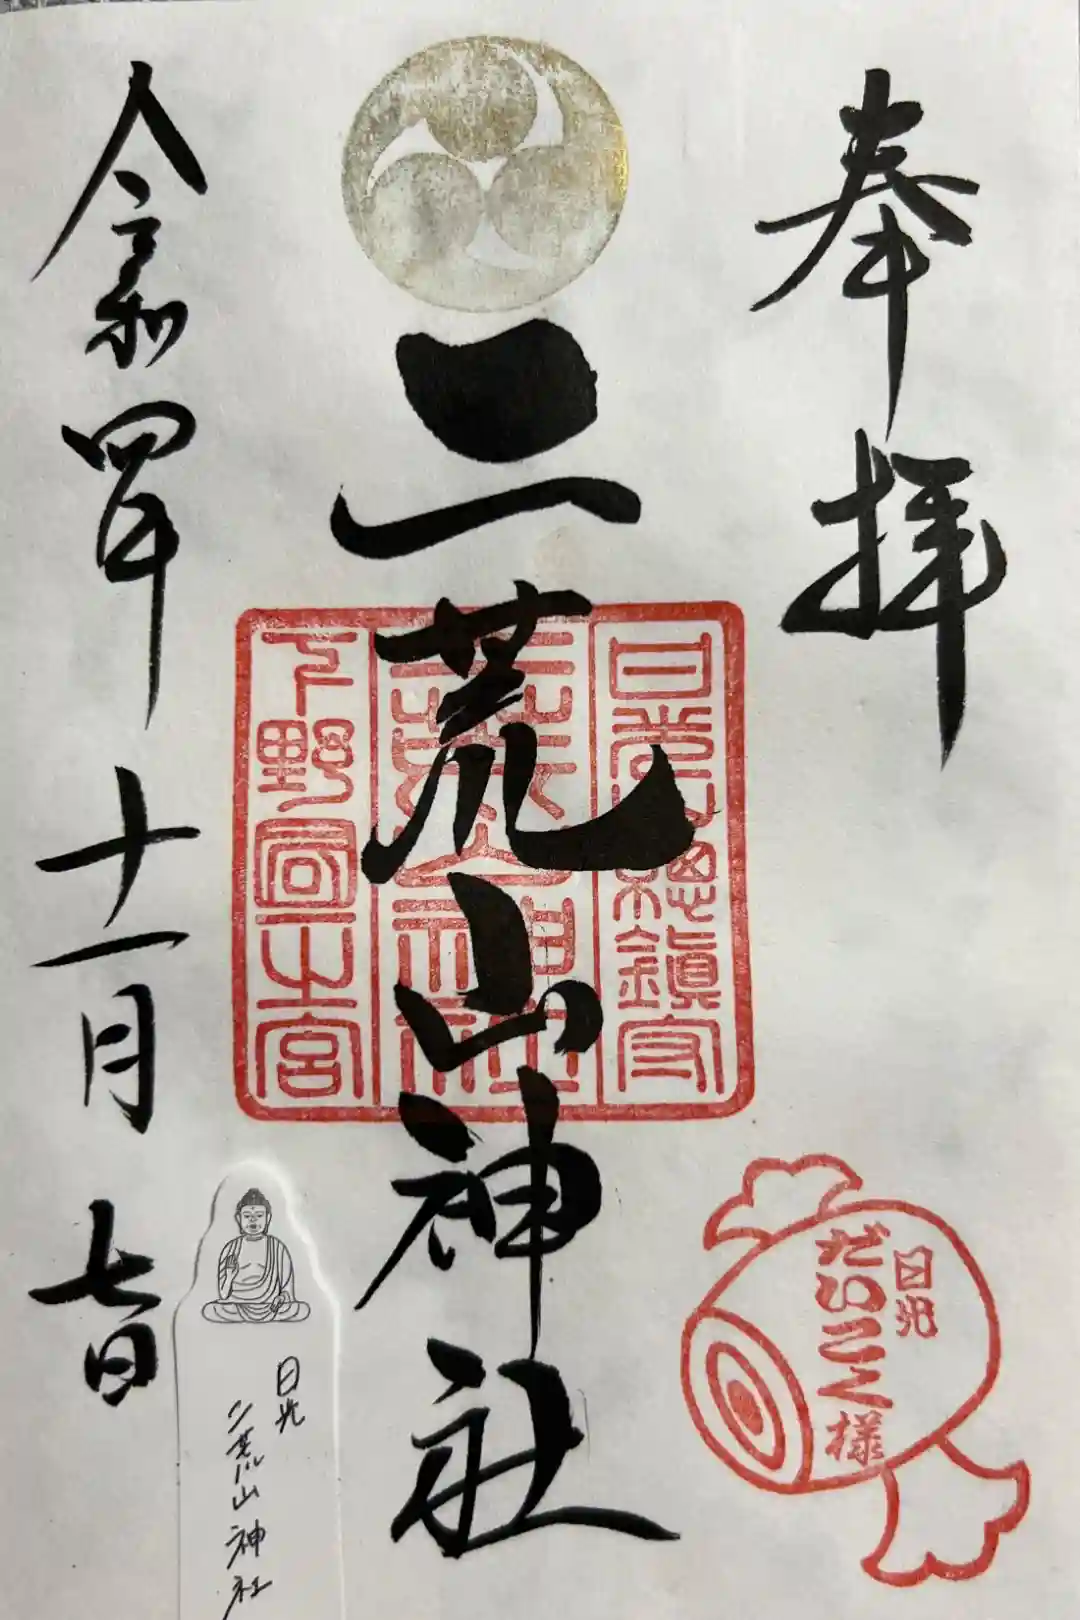 奉拝
二荒山神社
日光総鎮守
二荒山神社
下野国一之宮
令和四年十一月七日
日光
だいこく様
日光
二荒山神社